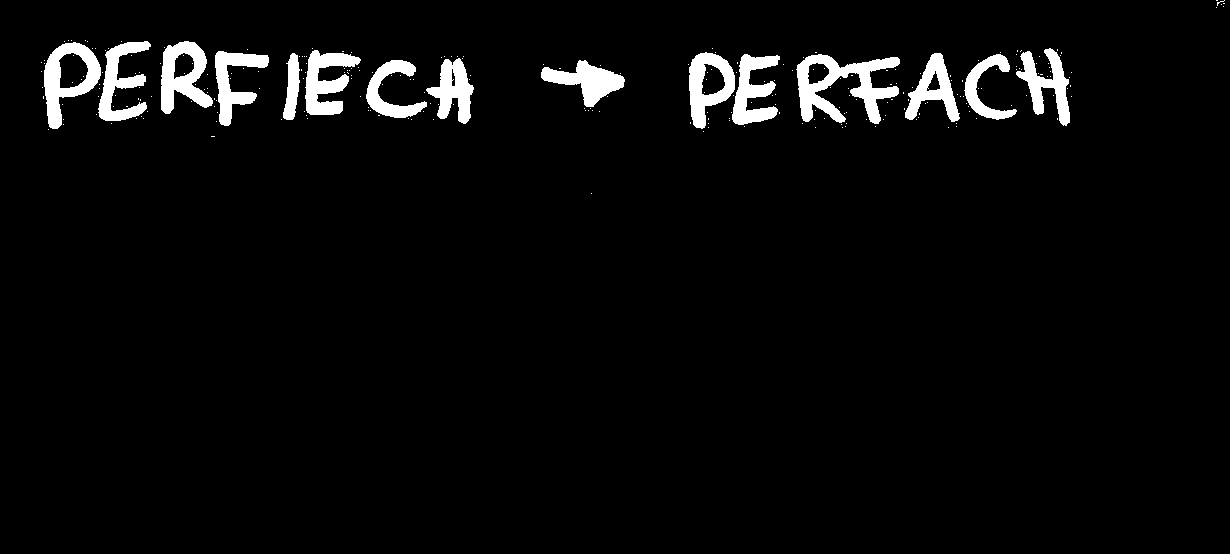 PERFIECH → PERFACH